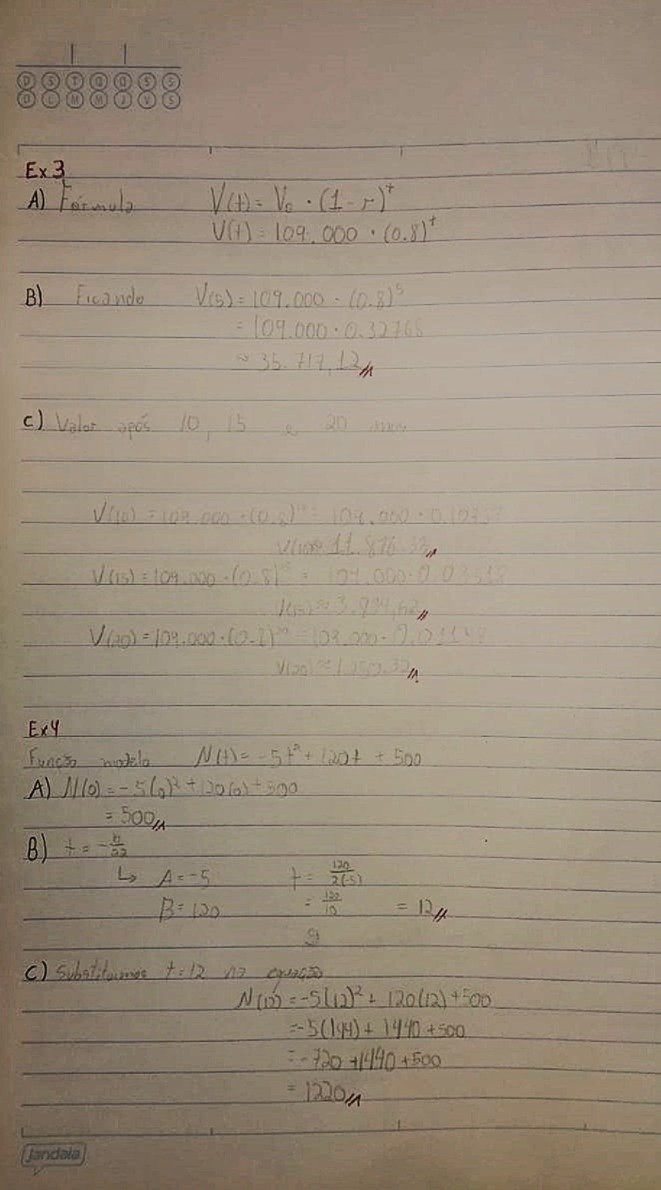 D S T Q Q S S
D L M M J V S
Ex 3
A) Fórmula V(t) = V₀ · (1 - r)^t
V(t) = 109.000 · (0.8)^t
B) Ficando V(5) = 109.000 · (0.8)⁵
= 109.000 · 0.32768
≈ 35.717,12
C) Valor após 10, 15 e 20 anos
V(10) = 109.000 · (0.8)¹⁰ = 109.000 · 0.10737
V(10) ≈ 11.876.33
V(15) = 109.000 · (0.8)¹⁵ = 109.000 · 0.03518
V(15) ≈ 3.834,62
V(20) = 109.000 · (0.8)²⁰ = 109.000 · 0.01148
V(20) ≈ 1.250.32
Ex4
Função modelo N(t) = -5t² + 120t + 500
A) N(0) = -5(0)² + 120(0) + 500
= 500
B) t = -b/2a
↳ A = -5 t = 120/2(-5)
B = 120 = 120/10 = 12
C) Substituimos t = 12 na equação
N(12) = -5(12)² + 120(12) + 500
= -5(144) + 1440 + 500
= -720 + 1440 + 500
= 1220
jandaia